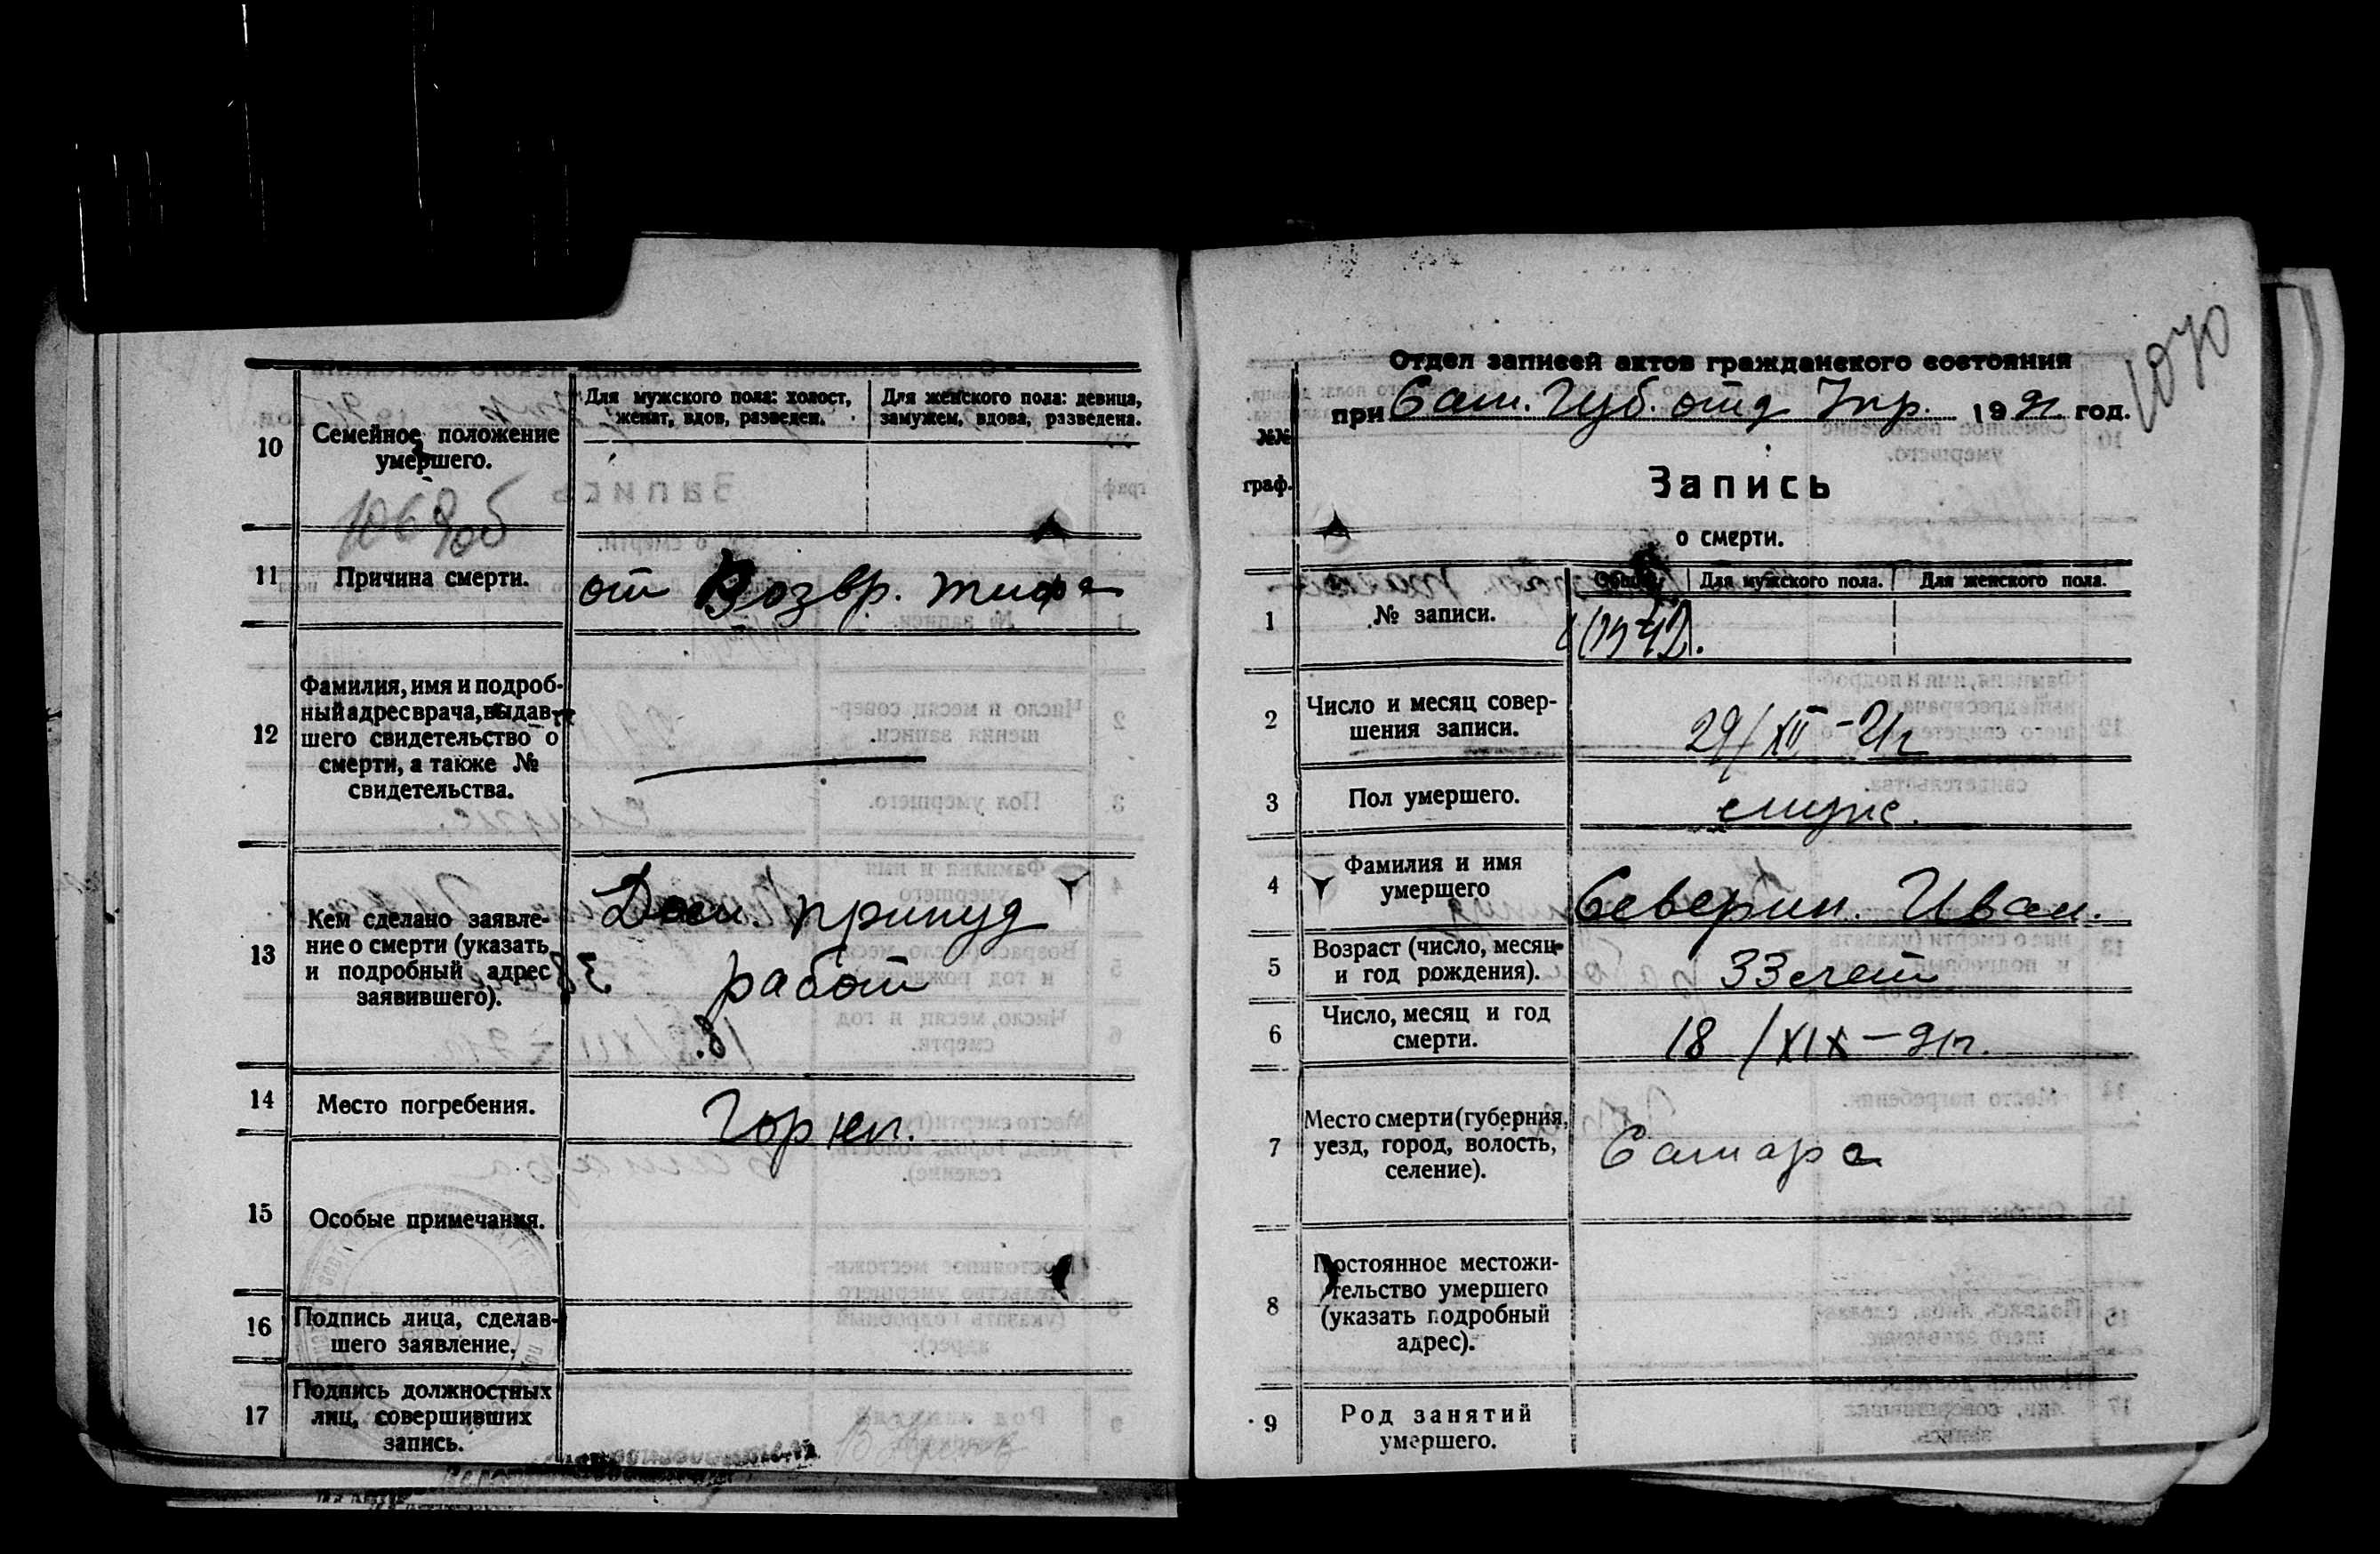 10
Семейное положение
умершего.
Для мужского пола: холост,
женат, вдов, разведен.
Для женского пола: девица,
замужем, вдова, разведена.
1069об
11
Причина смерти.
от Возвр. тифа
12
Фамилия, имя и подроб-
ный адрес врача, выдав-
шего свидетельство о
смерти, а также №
свидетельства.
13
Кем сделано заявле-
ние о смерти (указать
и подробный адрес
заявившего).
Дом. принуд
работ
14
Место погребения.
Гор кл.
15
Особые примечания.
16
Подпись лица, сделав-
шего заявление.
17
Подпись должностных
лиц, совершивших
запись.
1070
Отдел записей актов гражданского состояния
при Сам. Губ. отд Упр. 1921 год.
№№
граф.
Запись
о смерти.
Общий Для мужского пола. Для женского пола.
1
№ записи.
2
Число и месяц совер-
шения записи.
29/XII - 21г
3
Пол умершего.
муж.
4
Фамилия и имя
умершего
Северин. Иван.
5
Возраст (число, месяц
и год рождения).
33 лет
6
Число, месяц и год
смерти.
18 /XIX - 21г.
7
Место смерти (губерния,
уезд, город, волость,
селение).
Самара
8
Постоянное местожи-
тельство умершего
(указать подробный
адрес).
9
Род занятий
умершего.